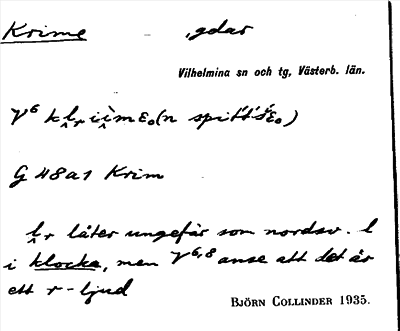 Krime - ,gdar
Vilhelmina sn och tg, Västerb. län.
V⁶
G 48a1 Krim
låter ungefär som nordsv. l
i klocka, men V⁶,⁸ anse att det är
ett r-ljud
BJÖRN COLLINDER 1935.